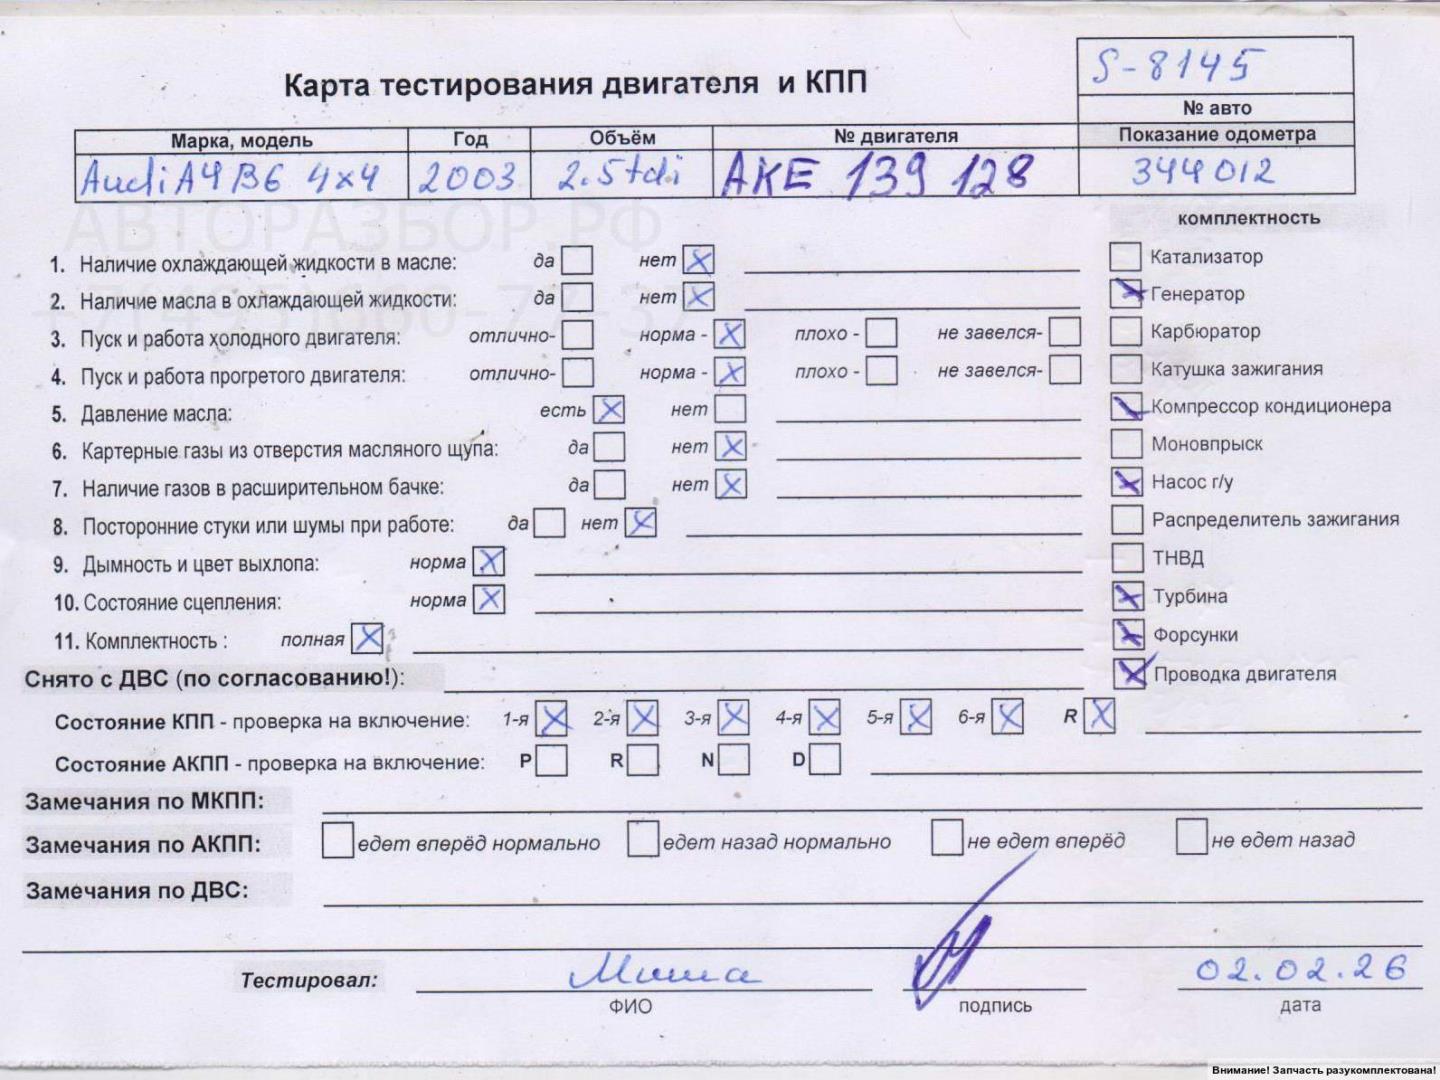 S-8145
Карта тестирования двигателя и КПП
№ авто
Марка, модель Год Объём № двигателя Показание одометра
Audi A4 B6 4x4 2003 2.5tdi AKE 139 128 344012
АВТОРАЗБОР.РФ
комплектность
1. Наличие охлаждающей жидкости в масле: да нет Катализатор
2. Наличие масла в охлаждающей жидкости: да нет Генератор
+7(495)660-77-37
3. Пуск и работа холодного двигателя: отлично- норма - плохо - не завелся- Карбюратор
4. Пуск и работа прогретого двигателя: отлично- норма - плохо - не завелся- Катушка зажигания
5. Давление масла: есть нет Компрессор кондиционера
6. Картерные газы из отверстия масляного щупа: да нет Моновпрыск
7. Наличие газов в расширительном бачке: да нет Насос г/у
8. Посторонние стуки или шумы при работе: да нет Распределитель зажигания
9. Дымность и цвет выхлопа: норма ТНВД
10. Состояние сцепления: норма Турбина
11. Комплектность : полная Форсунки
Снято с ДВС (по согласованию!): Проводка двигателя
Состояние КПП - проверка на включение: 1-я 2-я 3-я 4-я 5-я 6-я R
Состояние АКПП - проверка на включение: P R N D
Замечания по МКПП:
Замечания по АКПП: едет вперёд нормально едет назад нормально не едет вперёд не едет назад
Замечания по ДВС:
Тестировал: Миша 02.02.26
ФИО подпись дата
Внимание! Запчасть разукомплектована!